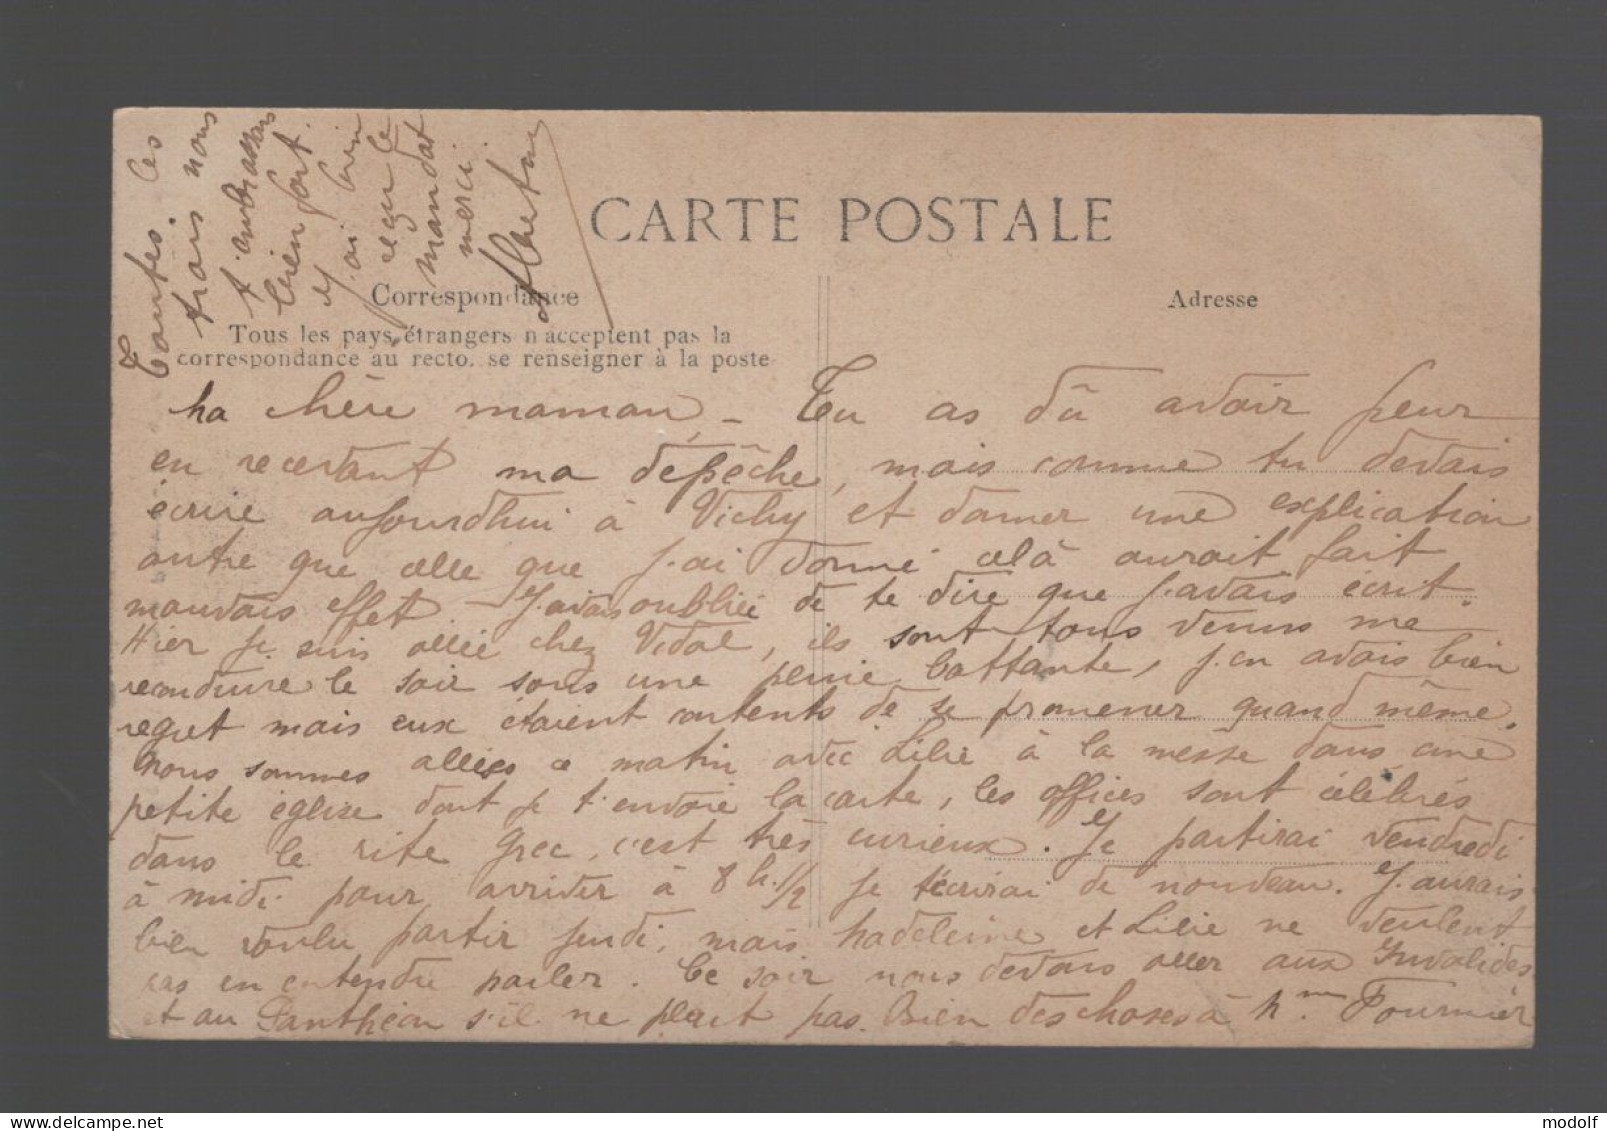 CARTE POSTALE
Correspondance
Adresse
Tous les pays étrangers n'acceptent pas la
correspondance au recto. se renseigner à la poste
Ma chère maman, - Tu as dû avoir peur
en recevant ma dépêche, mais comme tu devais
écrire aujourd'hui à Vichy et donner une explication
autre que celle que j'ai donné celà aurait fait
mauvais effet - J'avais oubliée de te dire que j'avais écrit.
Hier je suis allée chez Vidal, ils sont tous venus me
reconduire le soir sous une pluie battante, j'en avais bien
regret mais eux étaient contents de se promener quand même.
Nous sommes allées ce matin avec Lilie à la messe dans une
petite église dont je t'envoie la carte, les offices sont célébrés
dans le rite grec, c'est très curieux. Je partirai vendredi
à midi pour arriver à 8 h. 1/2 je t'écrirai de nouveau. J'aurais
bien voulu partir jeudi, mais Madeleine et Lilie ne veulent
pas en entendre parler. Ce soir nous devons aller aux Invalides
et au Panthéon s'il ne pleut pas. Bien des choses à Mme Fournier
Toutes les
trois nous
t'embrassons
bien fort.
J'ai bien
reçu le
mandat
merci.
modolf
www.delcampe.net